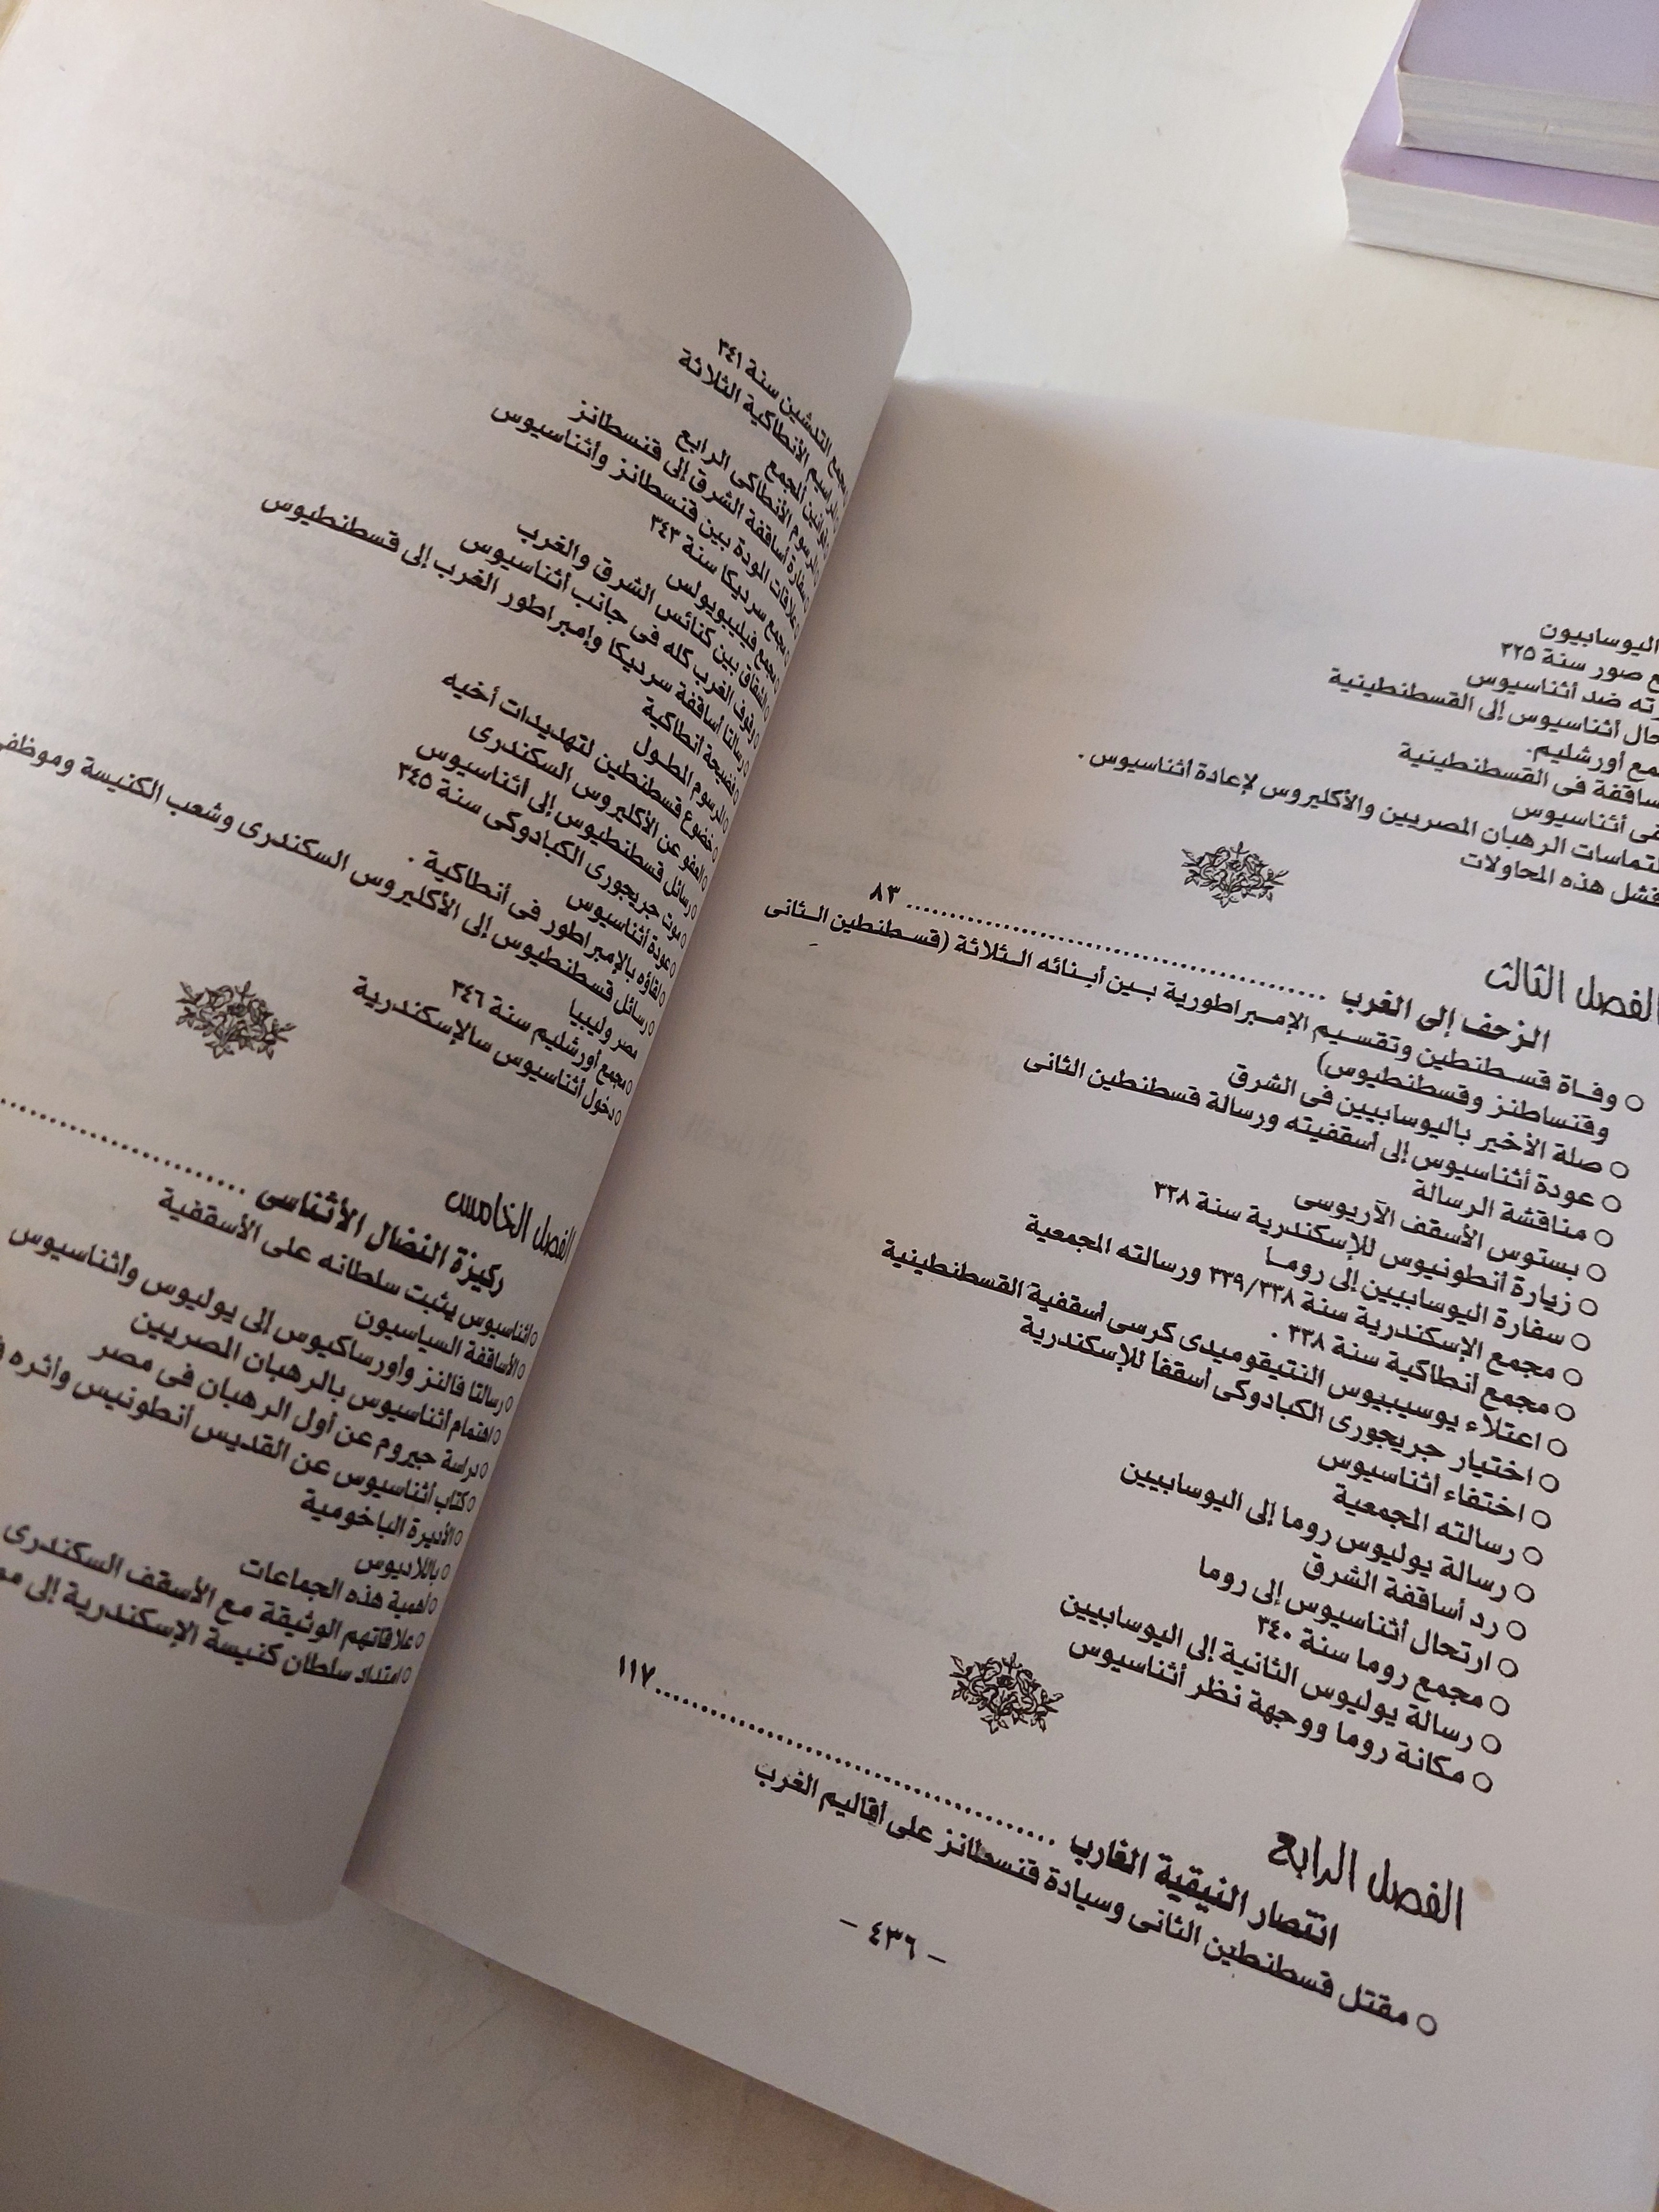 اليوسابيون
صور سنة ٣٢٥
ضد أثناسيوس
أثناسيوس إلى القسطنطينية
أورشليم.
فى القسطنطينية
أثناسيوس
الرهبان المصريين والأكليروس لإعادة أثناسيوس .
فشل هذه المحاولات
الفصل الثالث
الزحف إلى الغرب ........................ ٨٣
○ وفاة قسطنطين وتقسيم الإمبراطورية بين أبنائه الثلاثة (قسطنطين الثانى
وقنساطنز وقسطنطيوس)
○ صلة الأخير باليوسابيين فى الشرق
○ عودة أثناسيوس إلى أسقفيته ورسالة قسطنطين الثانى
○ مناقشة الرسالة
○ بستوس الأسقف الآريوسى
○ زيارة أنطونيوس للإسكندرية سنة ٣٣٨
○ سفارة اليوسابيين إلى روما
○ مجمع الإسكندرية سنة ٣٣٩/٣٣٨ ورسالته المجمعية
○ مجمع أنطاكية سنة ٣٣٨ .
○ اعتلاء يوسيبيوس النتيقوميدى كرسى أسقفية القسطنطينية
○ اختيار جريجورى الكبادوكى أسقفا للإسكندرية
○ اختفاء أثناسيوس
○ رسالته المجمعية
○ رسالة يوليوس روما إلى اليوسابيين
○ رد أساقفة الشرق
○ ارتحال أثناسيوس إلى روما
○ مجمع روما سنة ٣٤٠
○ رسالة يوليوس الثانية إلى اليوسابيين
○ مكانة روما ووجهة نظر أثناسيوس
الفصل الرابع
انتصار النيقية الغارب ........................ ١١٧
○ مقتل قسطنطين الثانى وسيادة قنسطانز على أقاليم الغرب
– ٤٣٦ –
مجمع التدشين سنة ٣٤١
المراسيم الأنطاكية الثلاثة
قوانين المجمع
المرسوم الأنطاكى الرابع
سفارة أساقفة الشرق إلى قنسطانز
○ علاقات المودة بين قنسطانز وأثناسيوس
○ مجمع سرديكا سنة ٣٤٣
○ مجمع فيليبوبولس
○ الشقاق بين كنائس الشرق والغرب
○ وقوف الغرب كله فى جانب أثناسيوس
○ رسالتا أساقفة سرديكا وإمبراطور الغرب إلى قسطنطيوس
○ فضيحة أنطاكية
○ الرسوم المطول
○ خضوع قسطنطين لتهديدات أخيه
○ العفو عن الأكليروس السكندرى
○ رسائل قسطنطيوس إلى أثناسيوس
○ موت جريجورى الكبادوكى سنة ٣٤٥
○ عودة أثناسيوس
○ لقاؤه بالإمبراطور فى أنطاكية .
○ رسائل قسطنطيوس إلى الأكليروس السكندرى وشعب الكنيسة وموظفى
مصر وليبيا
○ مجمع أورشليم سنة ٣٤٦
○ دخول أثناسيوس سالإسكندرية
الفصل الخامس
ركيزة النضال الأثناسى ........................
○ أثناسيوس يثبت سلطانه على الأسقفية
○ الأساقفة السياسيون
○ رسالتا فالنز وأورساكيوس إلى يوليوس وأثناسيوس
○ اهتمام أثناسيوس بالرهبان المصريين
○ دراسة جيروم عن أول الرهبان فى مصر
○ كتاب أثناسيوس عن القديس أنطونيس وأثره
○ الأديرة الباخومية
○ باللاديوس
○ أهمية هذه الجماعات
○ علاقاتهم الوثيقة مع الأسقف السكندرى
○ امتداد سلطان كنيسة الإسكندرية إلى